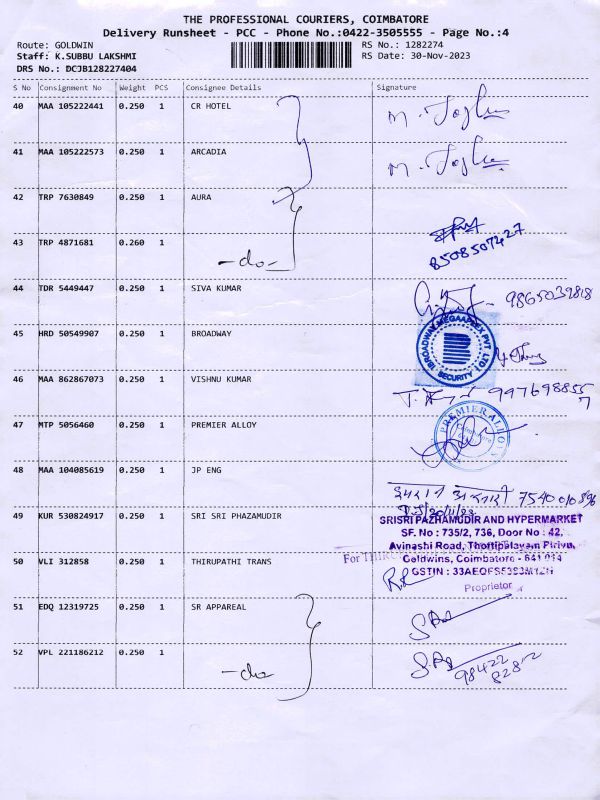 THE PROFESSIONAL COURIERS, COIMBATORE
Delivery Runsheet - PCC - Phone No.:0422-3505555 - Page No.:4
Route: GOLDWIN RS No.: 1282274
Staff: K.SUBBU LAKSHMI RS Date: 30-Nov-2023
DRS No.: DCJB128227404
S No Consignment No Weight PCS Consignee Details Signature
40 MAA 105222441 0.250 1 CR HOTEL
41 MAA 105222573 0.250 1 ARCADIA
42 TRP 7630849 0.250 1 AURA
43 TRP 4871681 0.260 1 -do- 8508507427
44 TDR 5449447 0.250 1 SIVA KUMAR 9865039818
45 HRD 50549907 0.250 1 BROADWAY
BROADWAY MEGAAPLEX PVT LTD
SECURITY
46 MAA 862867073 0.250 1 VISHNU KUMAR
47 MTP 5056460 0.250 1 PREMIER ALLOY
PREMIER ALLOYS
48 MAA 104085619 0.250 1 JP ENG
49 KUR 530824917 0.250 1 SRI SRI PHAZAMUDIR
SRISRI PAZHAMUDIR AND HYPERMARKET
SF. No : 735/2, 736, Door No : 42,
Avinashi Road, Thottipalayam Pirivu,
50 VLI 312858 0.250 1 THIRUPATHI TRANS
Goldwins, Coimbatore - 641 014
GSTIN :
Proprietor
51 EDQ 12319725 0.250 1 SR APPAREAL
52 VPL 221186212 0.250 1 -do-
98422